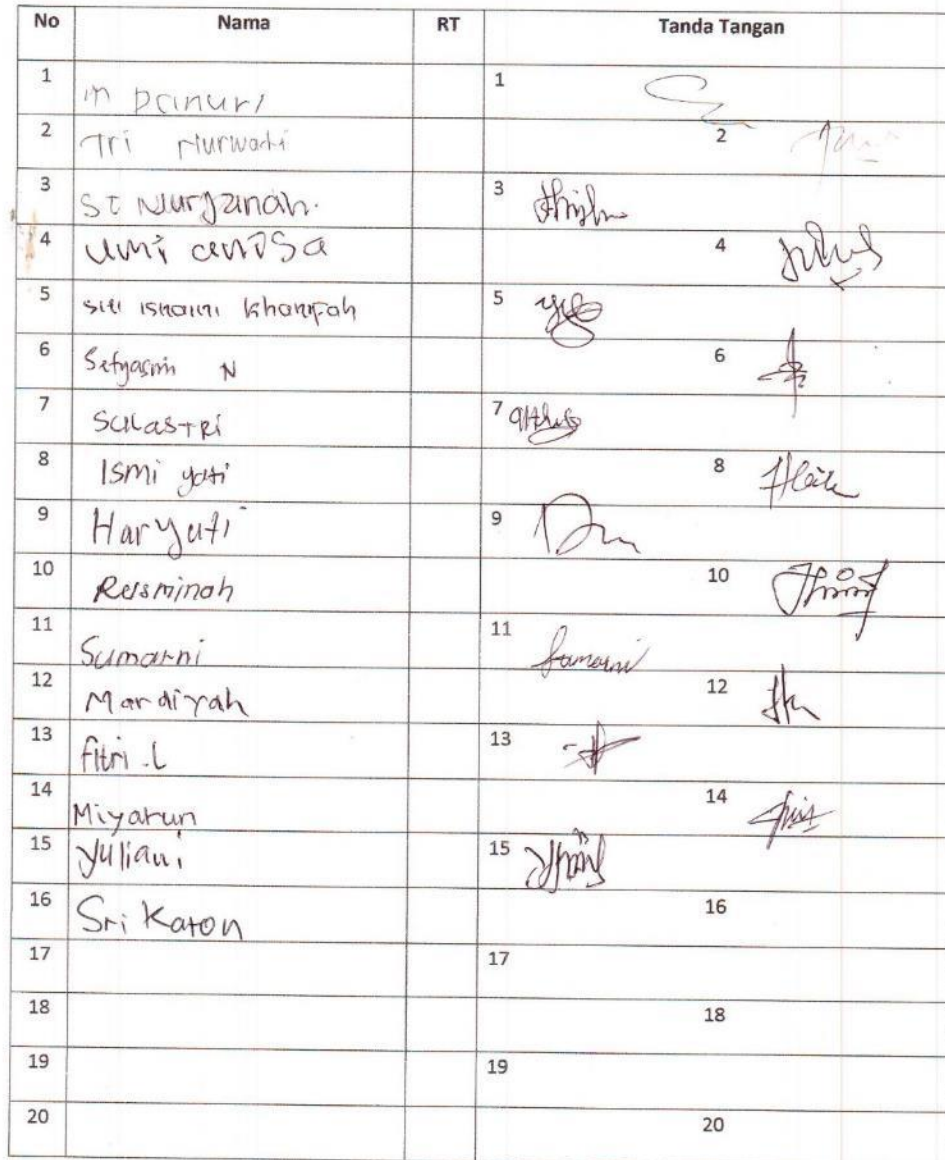 No Nama RT Tanda Tangan
1 m Danuri 1
2 Tri Nurwati 2
3 St Nurjanah. 3
4 Umi anisa 4
5 siti isnaini khanifah 5
6 Setyasim N 6
7 Sulastri 7
8 Ismi yati 8
9 Haryati 9
10 Rusminah 10
11 Sumarni 11 Sumarni
12 Mardiyah 12
13 fitri .L 13
14 Miyatun 14
15 Yuliani 15
16 Sri Katon 16
17 17
18 18
19 19
20 20